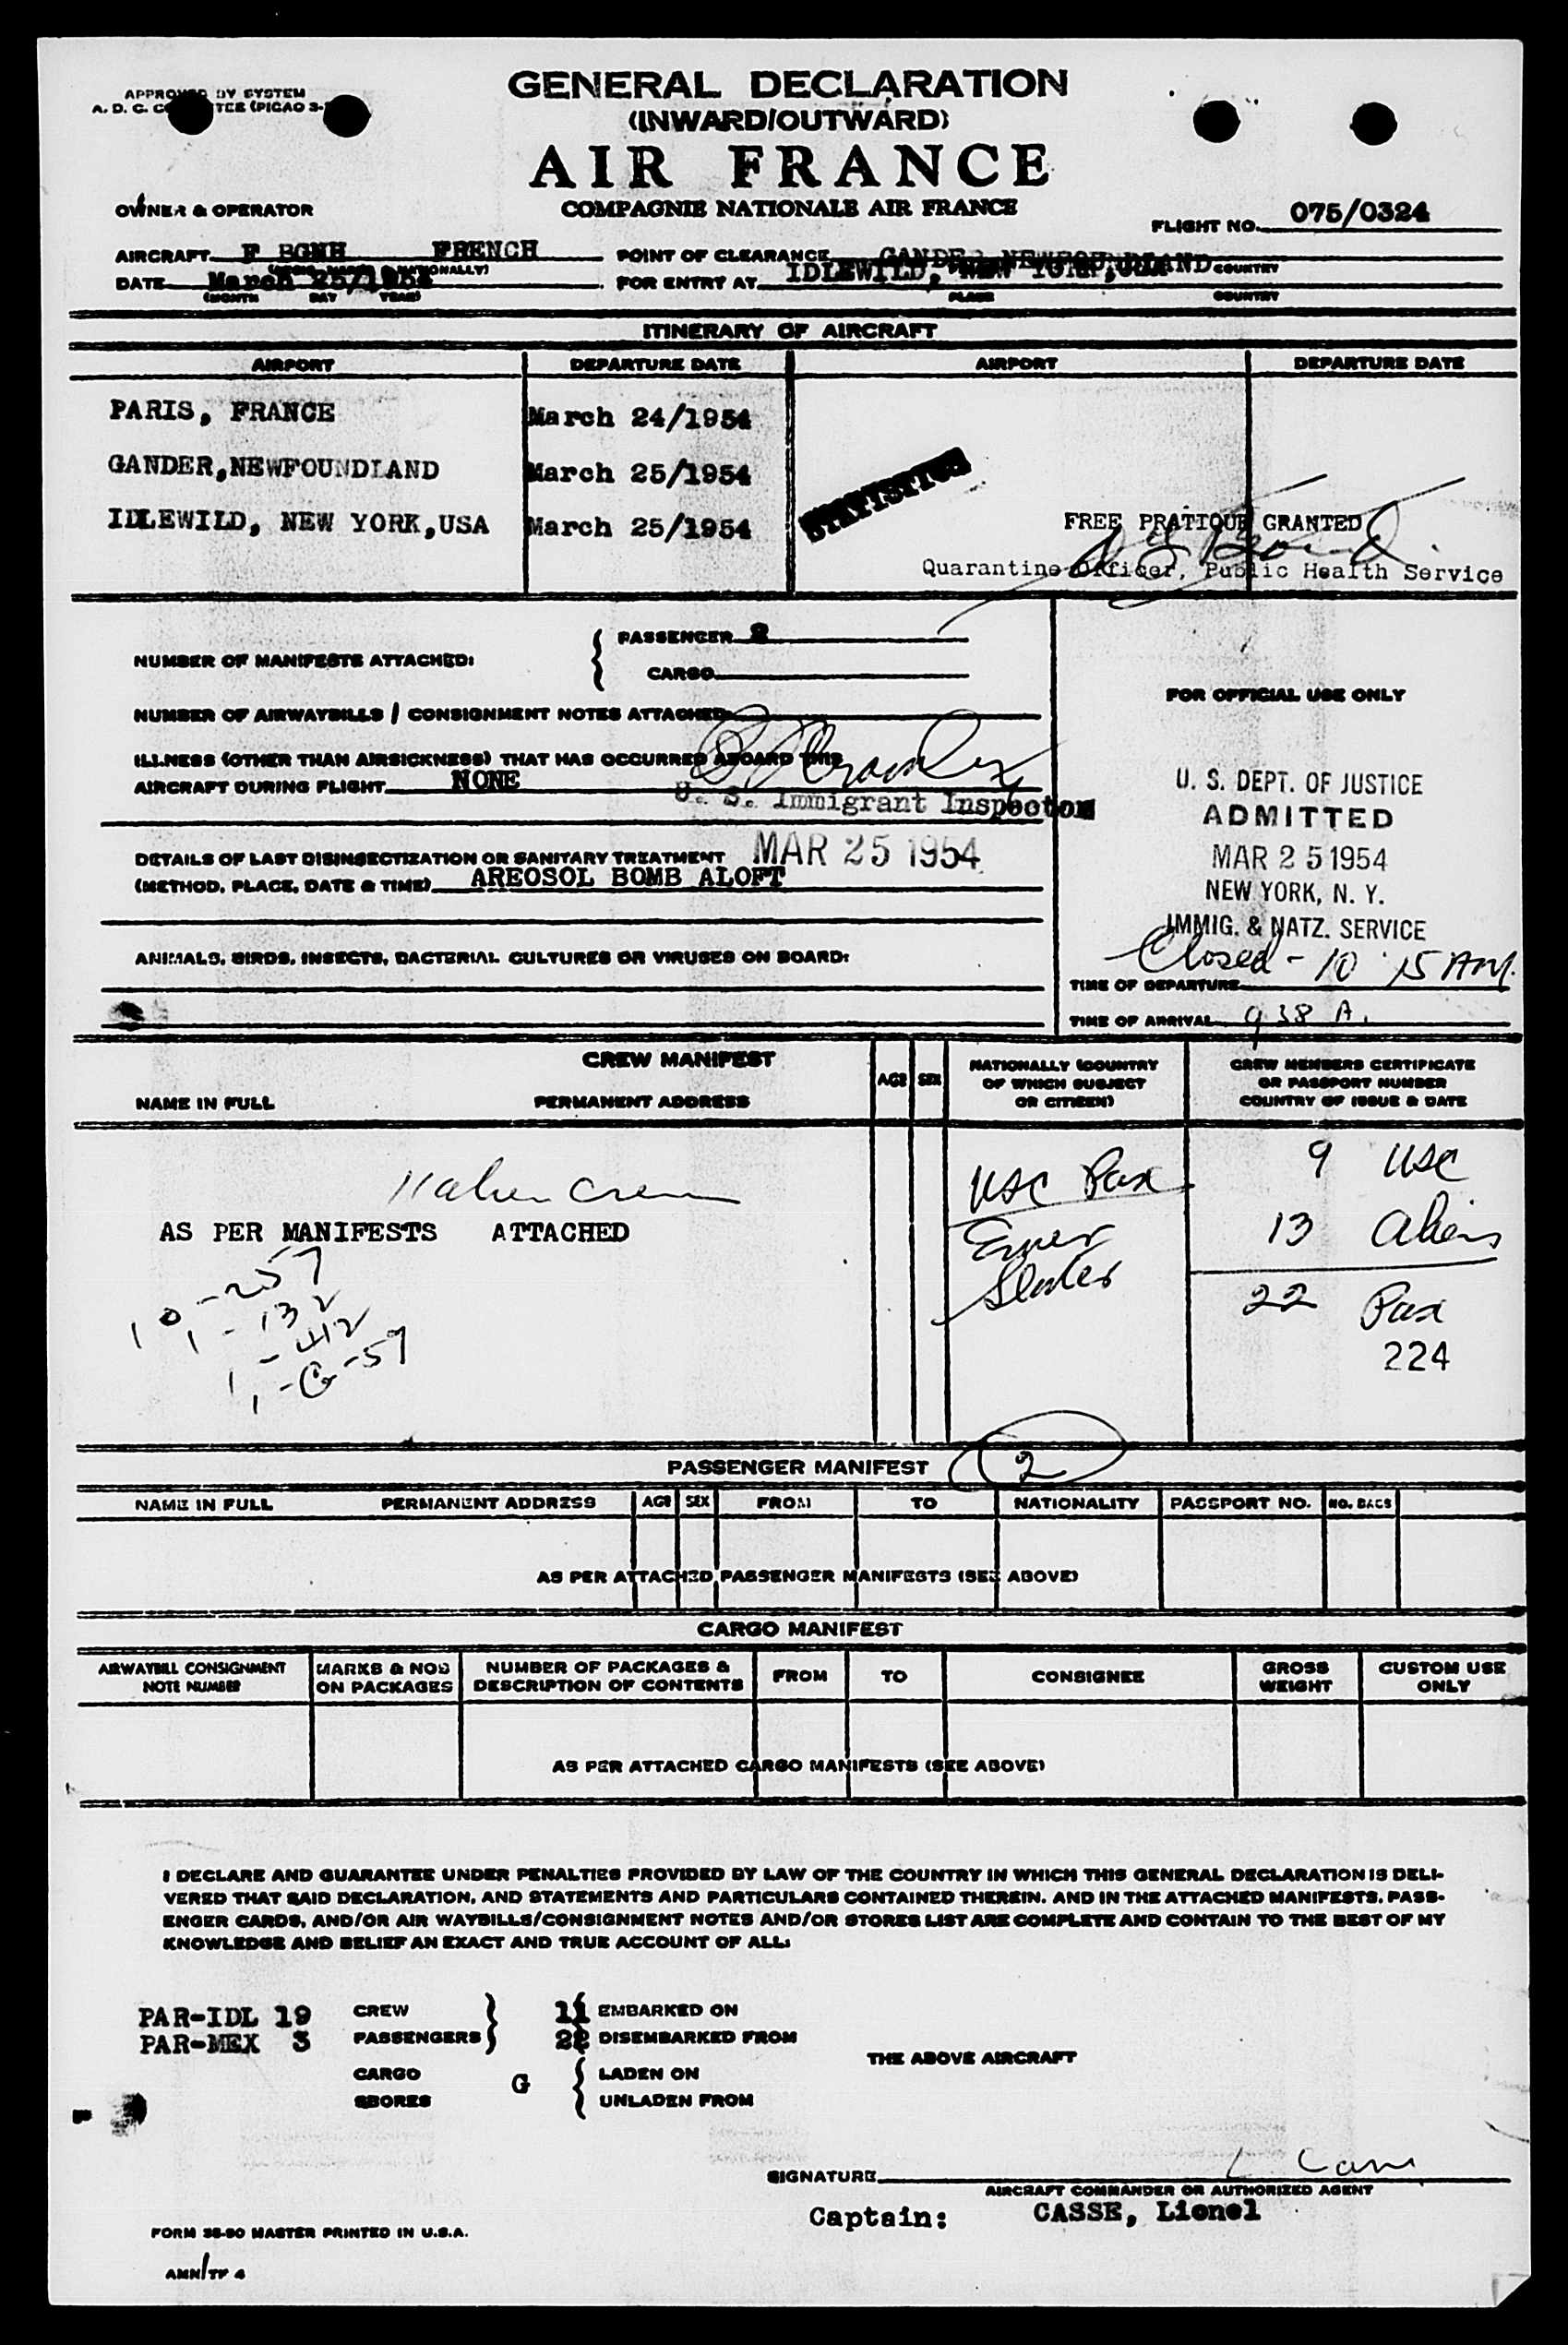 GENERAL DECLARATION
(INWARD/OUTWARD)
AIR FRANCE
COMPAGNIE NATIONALE AIR FRANCE
APPROVED BY SYSTEM
A. D. C. (PICAO
OWNER & OPERATOR
FLIGHT NO. 075/0324
AIRCRAFT F BGNH FRENCH
POINT OF CLEARANCE GANDER NEWFOUNDLAND COUNTRY
DATE March 25/1954
(MONTH DAY YEAR)
FOR ENTRY AT IDLEWILD, NEW YORK, USA
PLACE COUNTRY
ITINERARY OF AIRCRAFT
AIRPORT DEPARTURE DATE AIRPORT DEPARTURE DATE
PARIS, FRANCE March 24/1954
GANDER, NEWFOUNDLAND March 25/1954
IDLEWILD, NEW YORK, USA March 25/1954
STATISTICS
FREE PRATIQUE GRANTED
Quarantine Officer, Public Health Service
NUMBER OF MANIFESTS ATTACHED: PASSENGER 2
CARGO
NUMBER OF AIRWAYBILLS / CONSIGNMENT NOTES ATTACHED
ILLNESS (OTHER THAN AIRSICKNESS) THAT HAS OCCURRED ABOARD THIS
AIRCRAFT DURING FLIGHT NONE
U. S. Immigrant Inspector
DETAILS OF LAST DISINSECTIZATION OR SANITARY TREATMENT MAR 25 1954
(METHOD, PLACE, DATE & TIME) AREOSOL BOMB ALOFT
ANIMALS, BIRDS, INSECTS, BACTERIAL CULTURES OR VIRUSES ON BOARD:
FOR OFFICIAL USE ONLY
U. S. DEPT. OF JUSTICE
ADMITTED
MAR 25 1954
NEW YORK, N. Y.
IMMIG. & NATZ. SERVICE
Closed - 10 15 AM.
TIME OF DEPARTURE
TIME OF ARRIVAL 9 38 A.
CREW MANIFEST
NAME IN FULL PERMANENT ADDRESS AGE SEX
NATIONALLY (COUNTRY
OF WHICH SUBJECT
OR CITIZEN)
CREW MEMBERS CERTIFICATE
OR PASSPORT NUMBER
COUNTRY OF ISSUE & DATE
11 alien crew
AS PER MANIFESTS ATTACHED
10 - 257
1 - 132
1 - 412
1 - G-59
USC Pax
9 USC
13 Aliens
22 Pax
224
PASSENGER MANIFEST 2
NAME IN FULL PERMANENT ADDRESS AGE SEX FROM TO NATIONALITY PASSPORT NO. NO. BAGS
AS PER ATTACHED PASSENGER MANIFESTS (SEE ABOVE)
CARGO MANIFEST
AIRWAYBILL CONSIGNMENT
NOTE NUMBER
MARKS & NOS
ON PACKAGES
NUMBER OF PACKAGES &
DESCRIPTION OF CONTENTS
FROM TO CONSIGNEE
GROSS
WEIGHT
CUSTOM USE
ONLY
AS PER ATTACHED CARGO MANIFESTS (SEE ABOVE)
I DECLARE AND GUARANTEE UNDER PENALTIES PROVIDED BY LAW OF THE COUNTRY IN WHICH THIS GENERAL DECLARATION IS DELI-
VERED THAT SAID DECLARATION, AND STATEMENTS AND PARTICULARS CONTAINED THEREIN. AND IN THE ATTACHED MANIFESTS, PASS-
ENGER CARDS, AND/OR AIR WAYBILLS/CONSIGNMENT NOTES AND/OR STORES LIST ARE COMPLETE AND CONTAIN TO THE BEST OF MY
KNOWLEDGE AND BELIEF AN EXACT AND TRUE ACCOUNT OF ALL:
PAR-IDL 19 CREW 11 EMBARKED ON
PAR-MEX 3 PASSENGERS 22 DISEMBARKED FROM
THE ABOVE AIRCRAFT
CARGO G LADEN ON
SBORES UNLADEN FROM
SIGNATURE
AIRCRAFT COMMANDER OR AUTHORIZED AGENT
Captain: CASSE, Lionel
FORM 38-90 MASTER PRINTED IN U.S.A.
AMN/TF 4